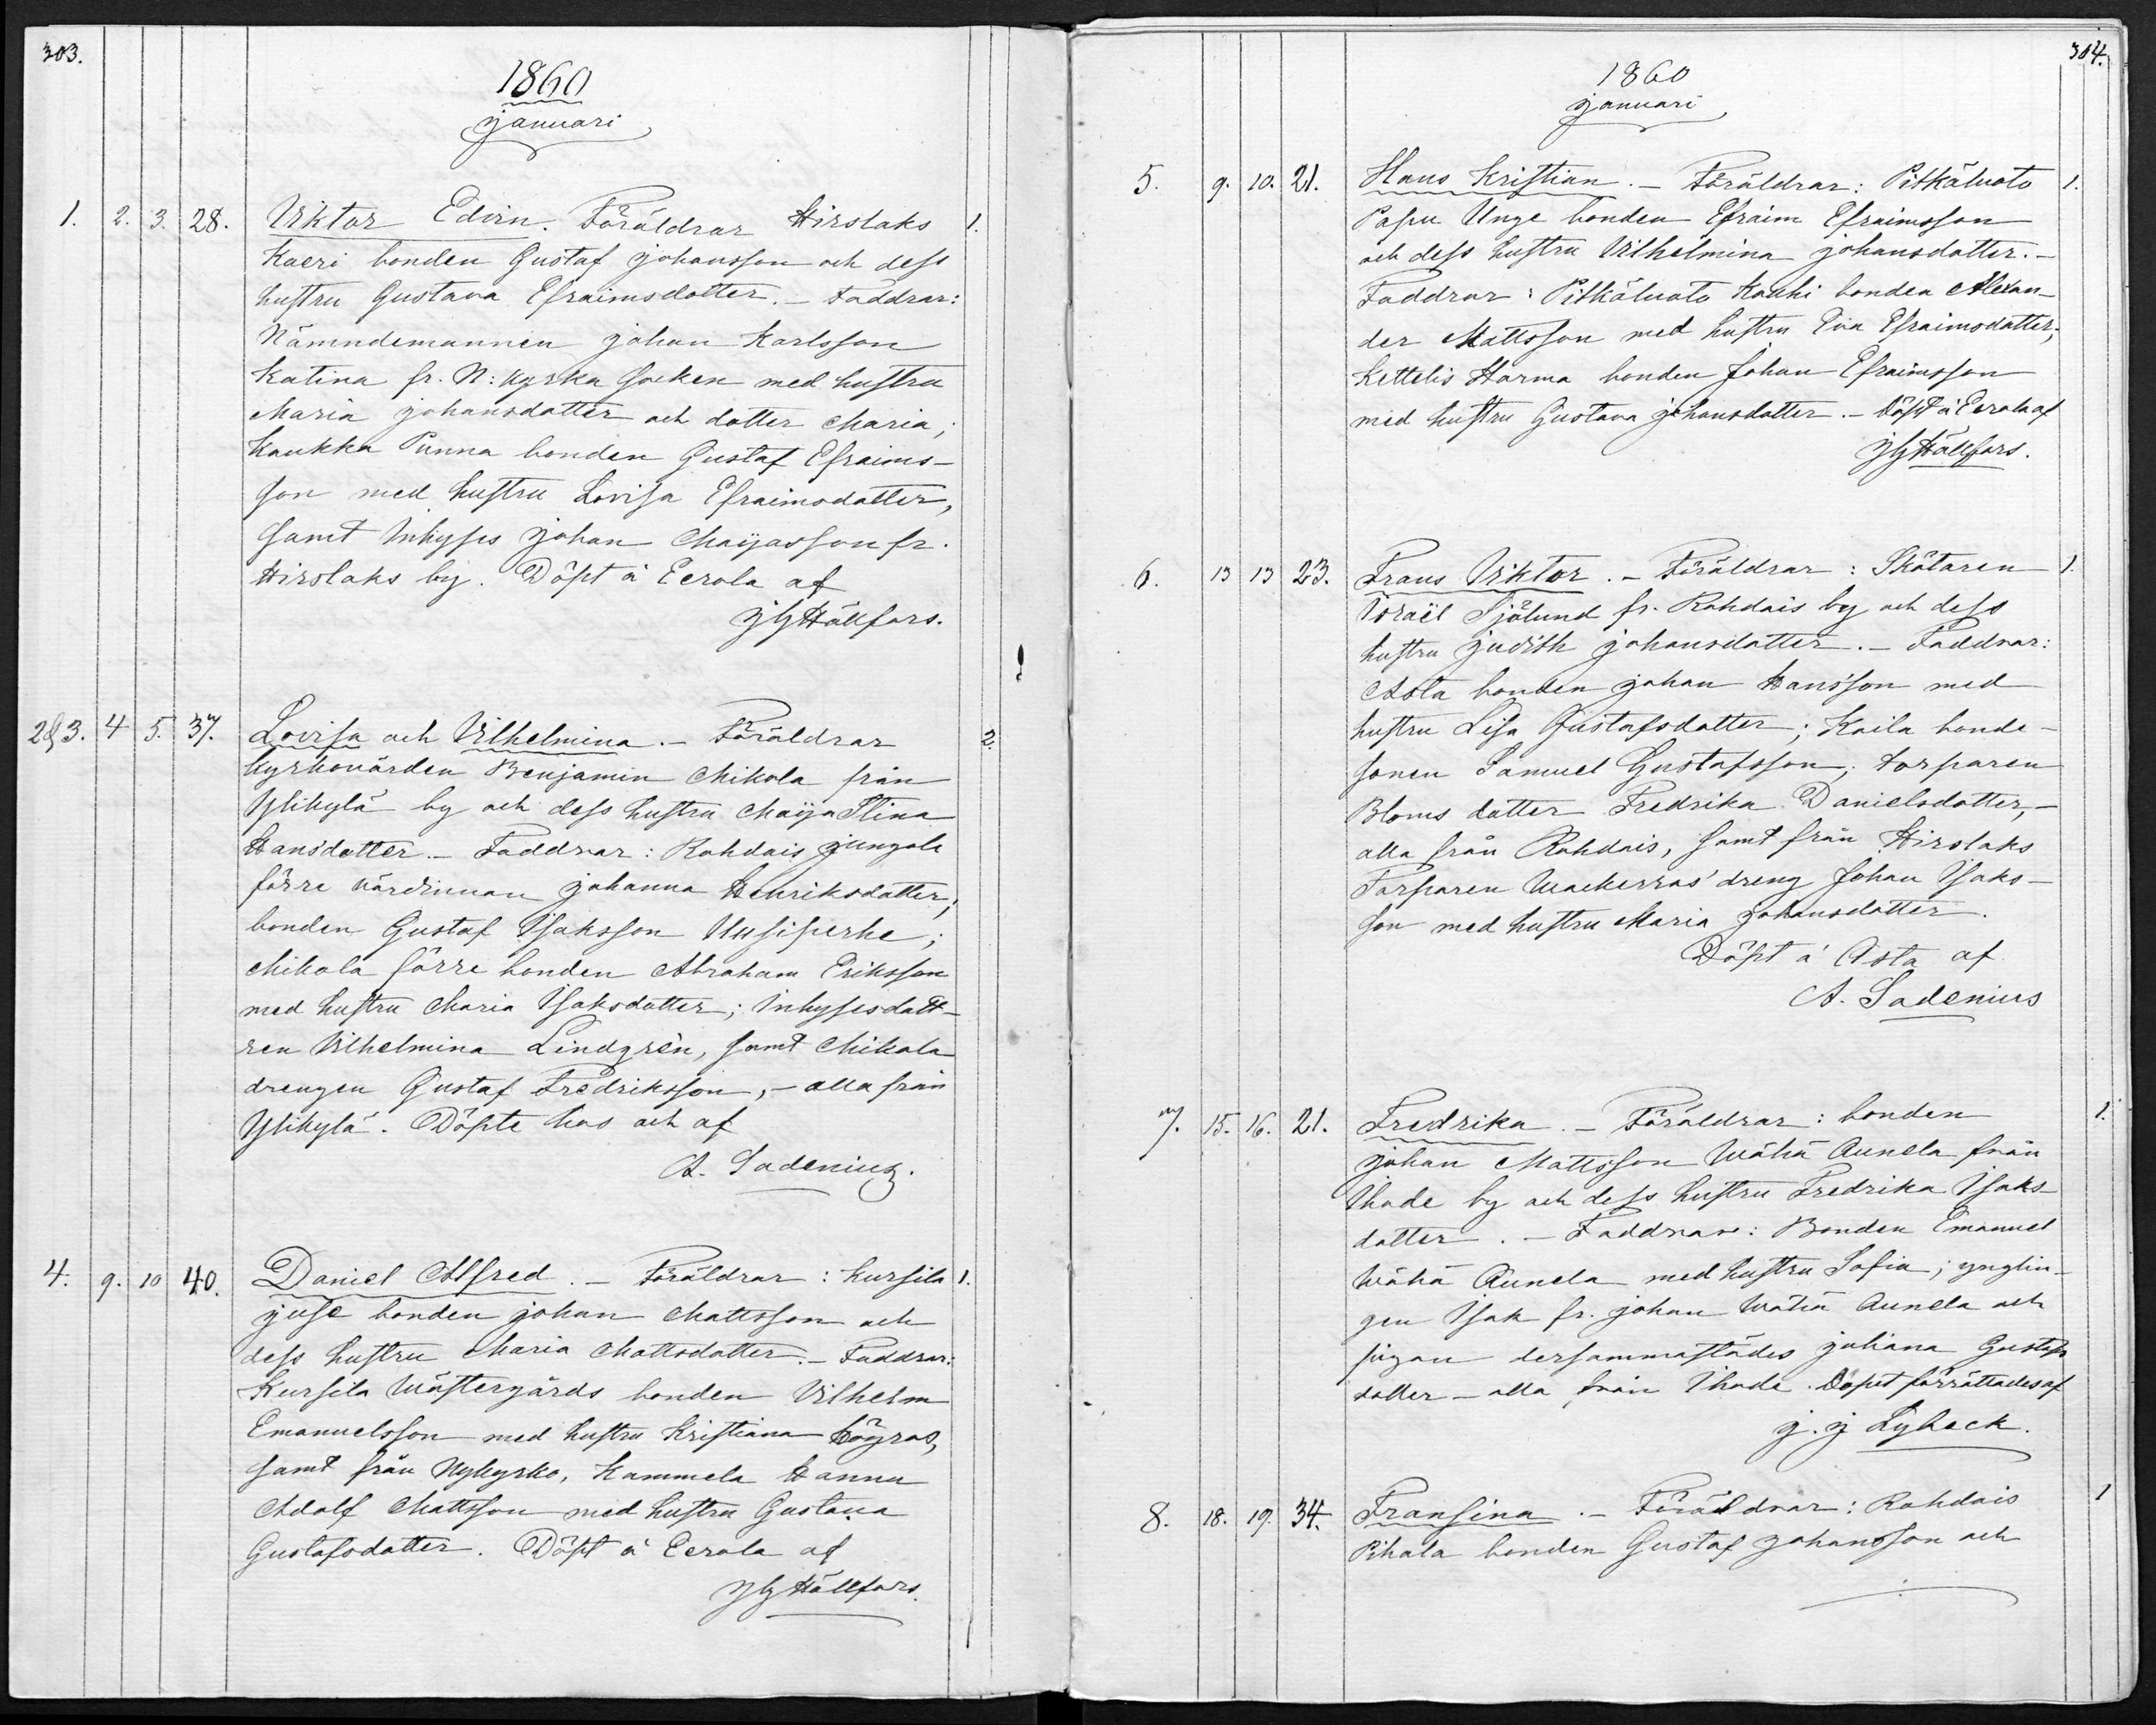 303.
1860
januari
1. 2. 3. 28. Viktor Edvin. Föräldrar Hirslaks 1.
Kaeri bonden Gustaf Johansson och dess
hustru Gustava Efraimsdotter. – Faddrar:
Nämndemannen Johan Karlsson
Katina fr. N: kyrka socken med hustru
Maria Johansdotter och dotter Maria;
Kaukka Punna bonden Gustaf Efraims-
son med hustru Lovisa Efraimsdotter,
samt Inhyses Johan Maijasson fr.
Hirslaks by. Döpt å Eerola af
JG Hällfors.
2&3. 4 5. 37. Lovisa och Vilhelmina. – Föräldrar 2.
kyrkovärden Benjamin Mikola från
Ylikylä by och dess hustru Maija Stina
Hansdotter. – Faddrar: Rahdais Jungola
förre värdinnan Johanna Henriksdotter;
bonden Gustaf Isaksson Uusiperhe;
Mikola förre bonden Abraham Eriksson
med hustru Maria Isaksdotter; Inhysesdott-
ren Vilhelmina Lindgrèn, samt Mikola
drengen Gustaf Fredriksson, – alla från
Ylikylä. Döpte hos och af
A. Sadenius.
4. 9. 10 40. Daniel Alfred. – Föräldrar: Kursila 1.
Juse bonden Johan Mattsson och
dess hustru Maria Mattsdotter. – Faddrar:
Kursila Wästergårds bonden Vilhelm
Emanuelsson med hustru Kristiana Högras,
samt från Nykyrko, Kammela Hannu
Adolf Mattsson med hustru Gustava
Gustafsdotter. Döpt å Eerola af
JG Hällfors.
304.
1860
januari
5. 9. 10. 21. Hans Kristian. – Föräldrar: Pitkäluoto 1.
Papu Unge bonden Efraim Efraimsson
och dess hustru Vilhelmina Johansdotter. –
Faddrar: Pitkäluoto Kauhi bonden Alexan-
der Mattsson med hustru Eva Efraimsdotter;
Kettelis Harma bonden Johan Efraimsson
med hustru Gustava Johansdotter. – Döpt å Eerola af
JG Hällfors.
6. 13 13 23. Frans Viktor. – Föräldrar: Skötaren 1.
Israël Sjölund fr. Rahdais by och dess
hustru Judith Johansdotter. – Faddrar:
Asta bonden Johan Hansson med
hustru Lisa Gustafsdotter; Kaila bonde-
sonen Samuel Gustafsson, torparen
Bloms dotter Fredrika Danielsdotter, –
alla från Rahdais, samt från Hirslaks
Torparen Wackerras' dreng Johan Isaks-
son med hustru Maria Johansdotter.
Döpt å Asta af
A. Sadenius
7. 15. 16. 21. Fredrika. – Föräldrar: bonden 1.
Johan Mattsson Wähä Aunela från
Ihode by och dess hustru Fredrika Isaks-
dotter. – Faddrar: Bonden Emanuel
Wähä Aunela med hustru Sofia; ynglin-
gen Isak fr. Johan Wähä Aunela och
pigan dersammastädes Juliana Gustafs
dotter – alla från Ihode. Dopet förrättades af
J. J Lybeck.
8. 18. 19. 34. Fransina. – Föräldrar: Rahdais 1
Pihala bonden Gustaf Johansson och